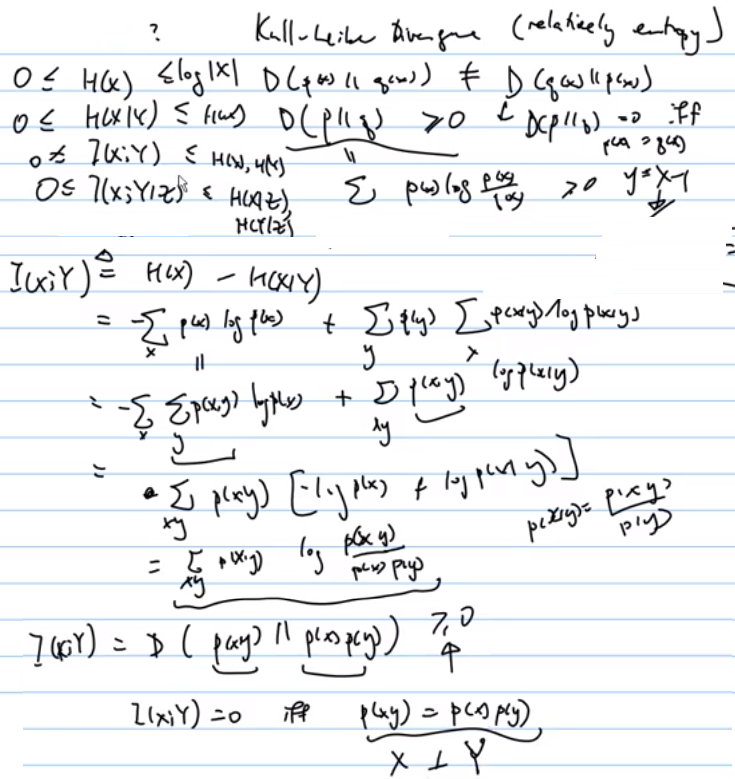 ? Kull-Leibe Divergne (relatively entropy)
0 ≤ H(x) ≤ log|X| D(p(x) || q(x)) ≠ D(q(x) || p(x))
0 ≤ H(X|Y) ≤ H(x) D(p||q) ≥ 0 D(p||q) = 0 iff
p(x) = q(x)
0 ≤ I(X;Y) ≤ H(x), H(Y)
0 ≤ I(X;Y|Z) ≤ H(X|Z), ∑ p(x) log p(x)/q(x) ≥ 0 y = x-1
H(Y|Z)
I(X;Y) ≜ H(X) - H(X|Y)
= -∑_x p(x) log p(x) + ∑_y p(y) ∑_x p(x|y) log p(x|y)
= -∑_x ∑_y p(xy) log p(x) + ∑_xy p(xy) log p(x|y)
= ∑_xy p(xy) [-log p(x) + log p(x|y)]
p(x|y) = p(xy)/p(y)
= ∑_xy p(xy) log p(xy)/p(x)p(y)
I(X;Y) = D(p(xy) || p(x)p(y)) ≥ 0
I(X;Y) = 0 iff p(xy) = p(x)p(y)
X ⊥ Y